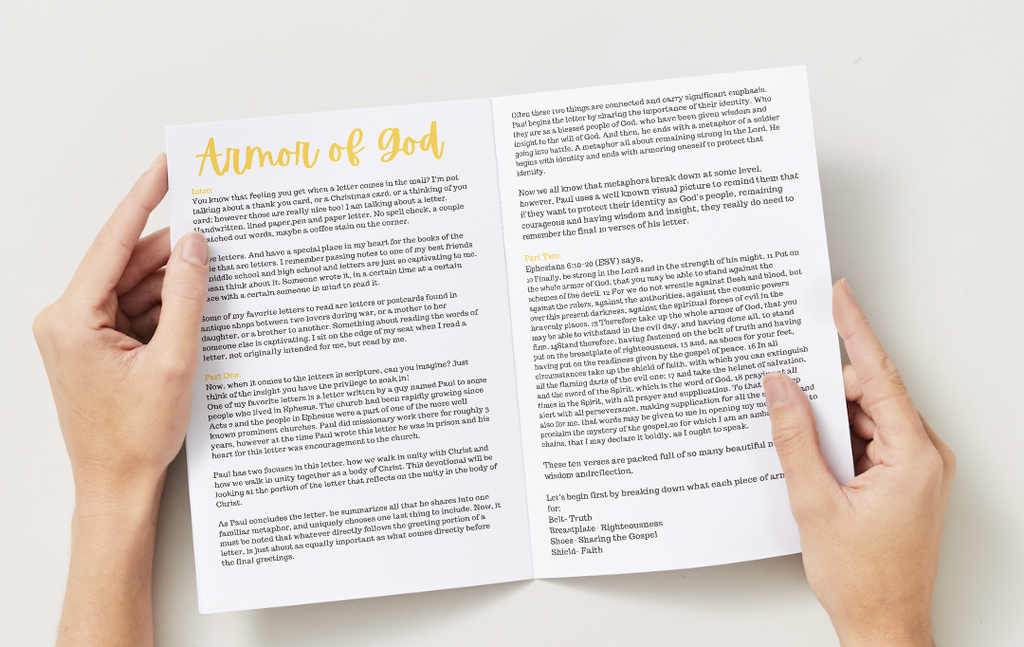 Armor of God
Intro:
You know that feeling you get when a letter comes in the mail? I'm not
talking about a thank you card, or a Christmas card, or a thinking of you
card; however those are really nice too! I am talking about a letter.
Handwritten, lined paper,pen and paper letter. No spell check, a couple
atched out words, maybe a coffee stain on the corner.
ve letters. And have a special place in my heart for the books of the
le that are letters. I remember passing notes to one of my best friends
middle school and high school and letters are just so captivating to me.
ean think about it. Someone wrote it, in a certain time at a certain
ace with a certain someone in mind to read it.
Some of my favorite letters to read are letters or postcards found in
antique shops between two lovers during war, or a mother to her
daughter, or a brother to another. Something about reading the words of
someone else is captivating. I sit on the edge of my seat when I read a
letter, not originally intended for me, but read by me.
Part One:
Now, when it comes to the letters in scripture, can you imagine? Just
think of the insight you have the privilege to soak in!
One of my favorite letters is a letter written by a guy named Paul to some
people who lived in Ephesus. The church had been rapidly growing since
Acts 2 and the people in Ephesus were a part of one of the more well
known prominent churches. Paul did missionary work there for roughly 3
years, however at the time Paul wrote this letter he was in prison and his
heart for this letter was encouragement to the church.
Paul has two focuses in this letter, how we walk in unity with Christ and
how we walk in unity together as a body of Christ. This devotional will be
looking at the portion of the letter that reflects on the unity in the body of
Christ.
As Paul concludes the letter, he summarizes all that he shares into one
familiar metaphor, and uniquely chooses one last thing to include. Now, it
must be noted that whatever directly follows the greeting portion of a
letter, is just about as equally important as what comes directly before
the final greetings.
Often these two things are connected and carry significant emphasis.
Paul begins the letter by sharing the importance of their identity. Who
they are as a blessed people of God, who have been given wisdom and
insight to the will of God. And then, he ends with a metaphor of a soldier
going into battle. A metaphor all about remaining strong in the Lord. He
begins with identity and ends with armoring oneself to protect that
identity.
Now we all know that metaphors break down at some level,
however, Paul uses a well known visual picture to remind them that
if they want to protect their identity as God's people, remaining
courageous and having wisdom and insight, they really do need to
remember the final 10 verses of his letter.
Part Two:
Ephesians 6:10-20 (ESV) says,
10 Finally, be strong in the Lord and in the strength of his might. 11 Put on
the whole armor of God, that you may be able to stand against the
schemes of the devil. 12 For we do not wrestle against flesh and blood, but
against the rulers, against the authorities, against the cosmic powers
over this present darkness, against the spiritual forces of evil in the
heavenly places. 13 Therefore take up the whole armor of God, that you
may be able to withstand in the evil day, and having done all, to stand
firm. 14Stand therefore, having fastened on the belt of truth and having
put on the breastplate of righteousness, 15 and, as shoes for your feet,
having put on the readiness given by the gospel of peace. 16 In all
circumstances take up the shield of faith, with which you can extinguish
all the flaming darts of the evil one; 17 and take the helmet of salvation,
and the sword of the Spirit, which is the word of God, 18 praying at all
times in the Spirit, with all prayer and supplication. To that ep
alert with all perseverance, making supplication for all the s and
also for me, that words may be given to me in opening my mo to
proclaim the mystery of the gospel,20 for which I am an amba
chains, that I may declare it boldly, as I ought to speak.
These ten verses are packed full of so many beautiful n
wisdom andreflection.
Let's begin first by breaking down what each piece of arm
for:
Belt- Truth
Breastplate- Righteousness
Shoes- Sharing the Gospel
Shield- Faith